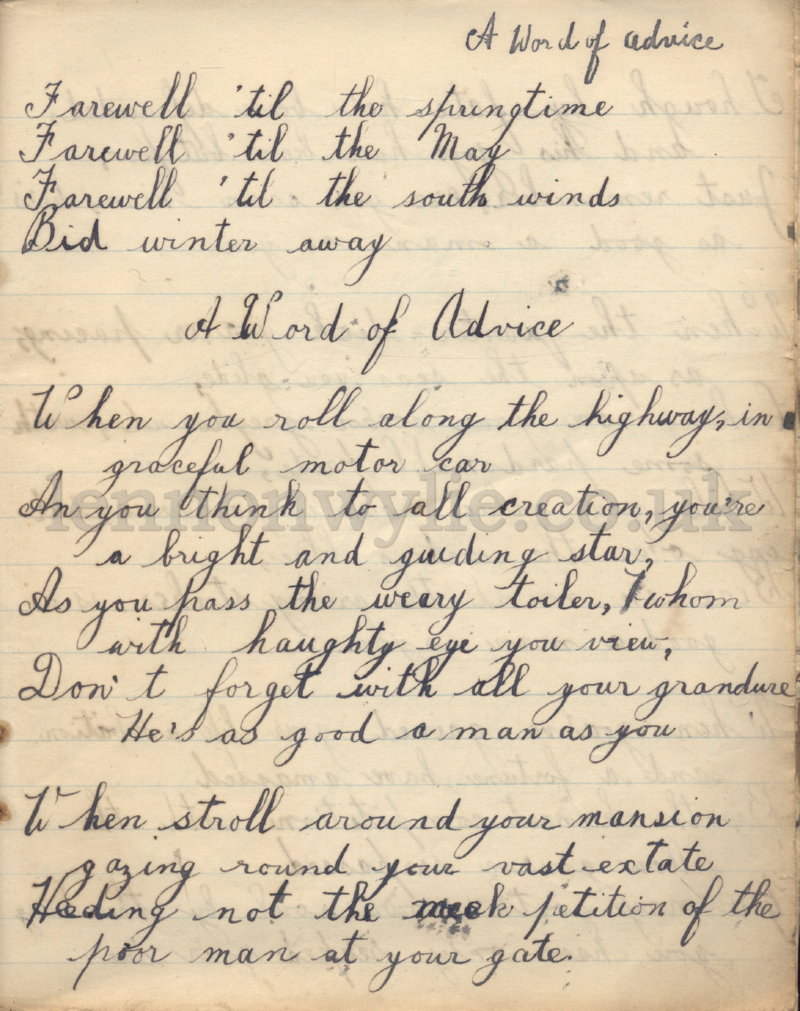 A Word of advice
Farewell 'til the springtime
Farewell 'til the May
Farewell 'til the south winds
Bid winter away
A Word of Advice
When you roll along the highway, in
graceful motor car
An you think to all creation, you're
a bright and guiding star,
As you pass the weary toiler, whom
with haughty eye you view,
Don't forget with all your grandure
He's as good a man as you
When stroll around your mansion
gazing round your vast extate
Heeding not the meek petition of the
poor man at your gate.
lennonwylie.co.uk